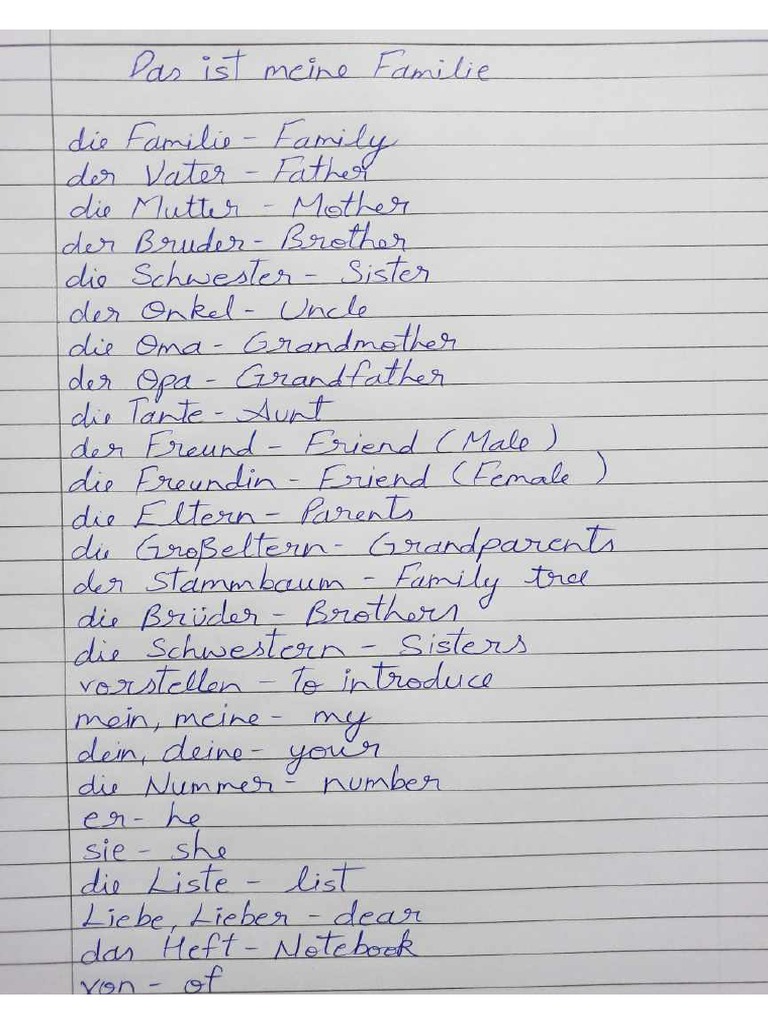 Das ist meine Familie
die Familie - Family
der Vater - Father
die Mutter - Mother
der Bruder - Brother
die Schwester - Sister
der Onkel - Uncle
die Oma - Grandmother
der Opa - Grandfather
die Tante - Aunt
der Freund - Friend (Male)
die Freundin - Friend (Female)
die Eltern - Parents
die Großeltern - Grandparents
der Stammbaum - Family tree
die Brüder - Brothers
die Schwestern - Sisters
vorstellen - To introduce
mein, meine - my
dein, deine - your
die Nummer - number
er - he
sie - she
die Liste - list
Liebe, Lieber - dear
das Heft - Notebook
von - of